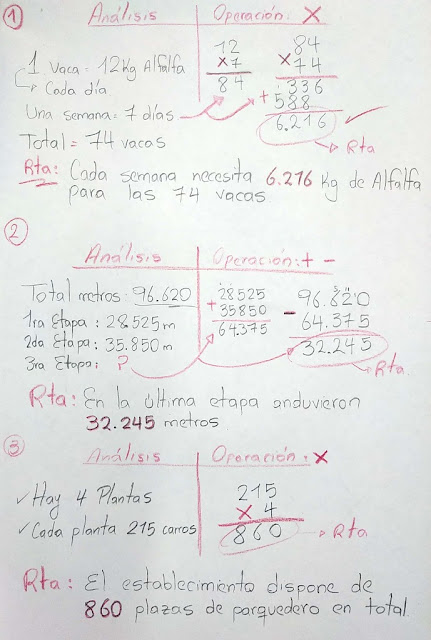 1
Análisis Operación: X
1 Vaca = 12 Kg Alfalfa
Cada día
Una semana = 7 días
Total = 74 vacas
12
x7
84
84
x74
336
+588
6.216
Rta
Rta: Cada semana necesita 6.216 Kg de Alfalfa
para las 74 vacas
2
Análisis Operación: + -
Total metros: 96.620
1ra Etapa: 28.525 m
2da Etapa: 35.850 m
3ra Etapa: ?
28525
+35850
64.375
96.620
- 64.375
32.245
Rta.
Rta: En la última etapa anduvieron
32.245 metros
3
Análisis Operación: x
✓ Hay 4 Plantas
✓ Cada planta 215 carros
215
x 4
860
Rta
Rta: El establecimiento dispone de
860 plazas de parquedero en total.